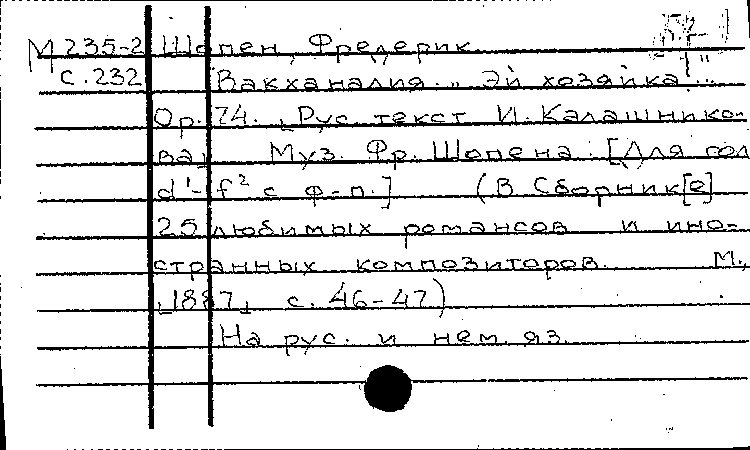 М 235-2 Шопен, Фредерик
с. 232 Вакханалия. „ Эй хозяйка...
Op. 74. [Рус. текст И. Калашнико-
ва] Муз. Фр. Шопена. [Для гол
d¹-f² с ф-п.] (В Сборник[е]
25 любимых романсов и ино-
странных композиторов. М.,
[1887] с. 46-47)
На рус. и нем. яз.